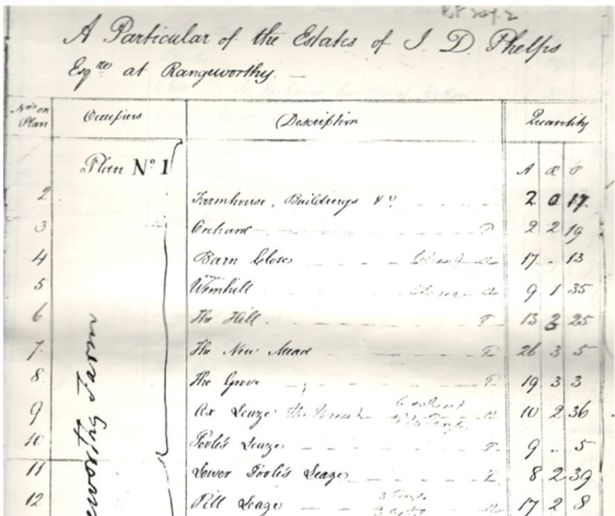 A Particular of the Estates of J. D. Phelps
Esqre at Rangeworthy. —
Nos on Plan Occupiers Description Quantity
Plan No 1 A R P
2 Farmhouse, Buildings &c 2 0 17
3 Orchard P 2 2 19
4 Barn Close 17 - 13
5 Wimhill 9 1 35
6 The Hill P 13 2 25
7 The New Mead P 26 3 5
8 The Grove P 19 3 3
9 Ox Leaze 10 2 36
10 Poole's Leaze P 9 - 5
11 Lower Poole's Leaze P 8 2 39
12 Pill Leaze 17 2 8
eworthy Farm